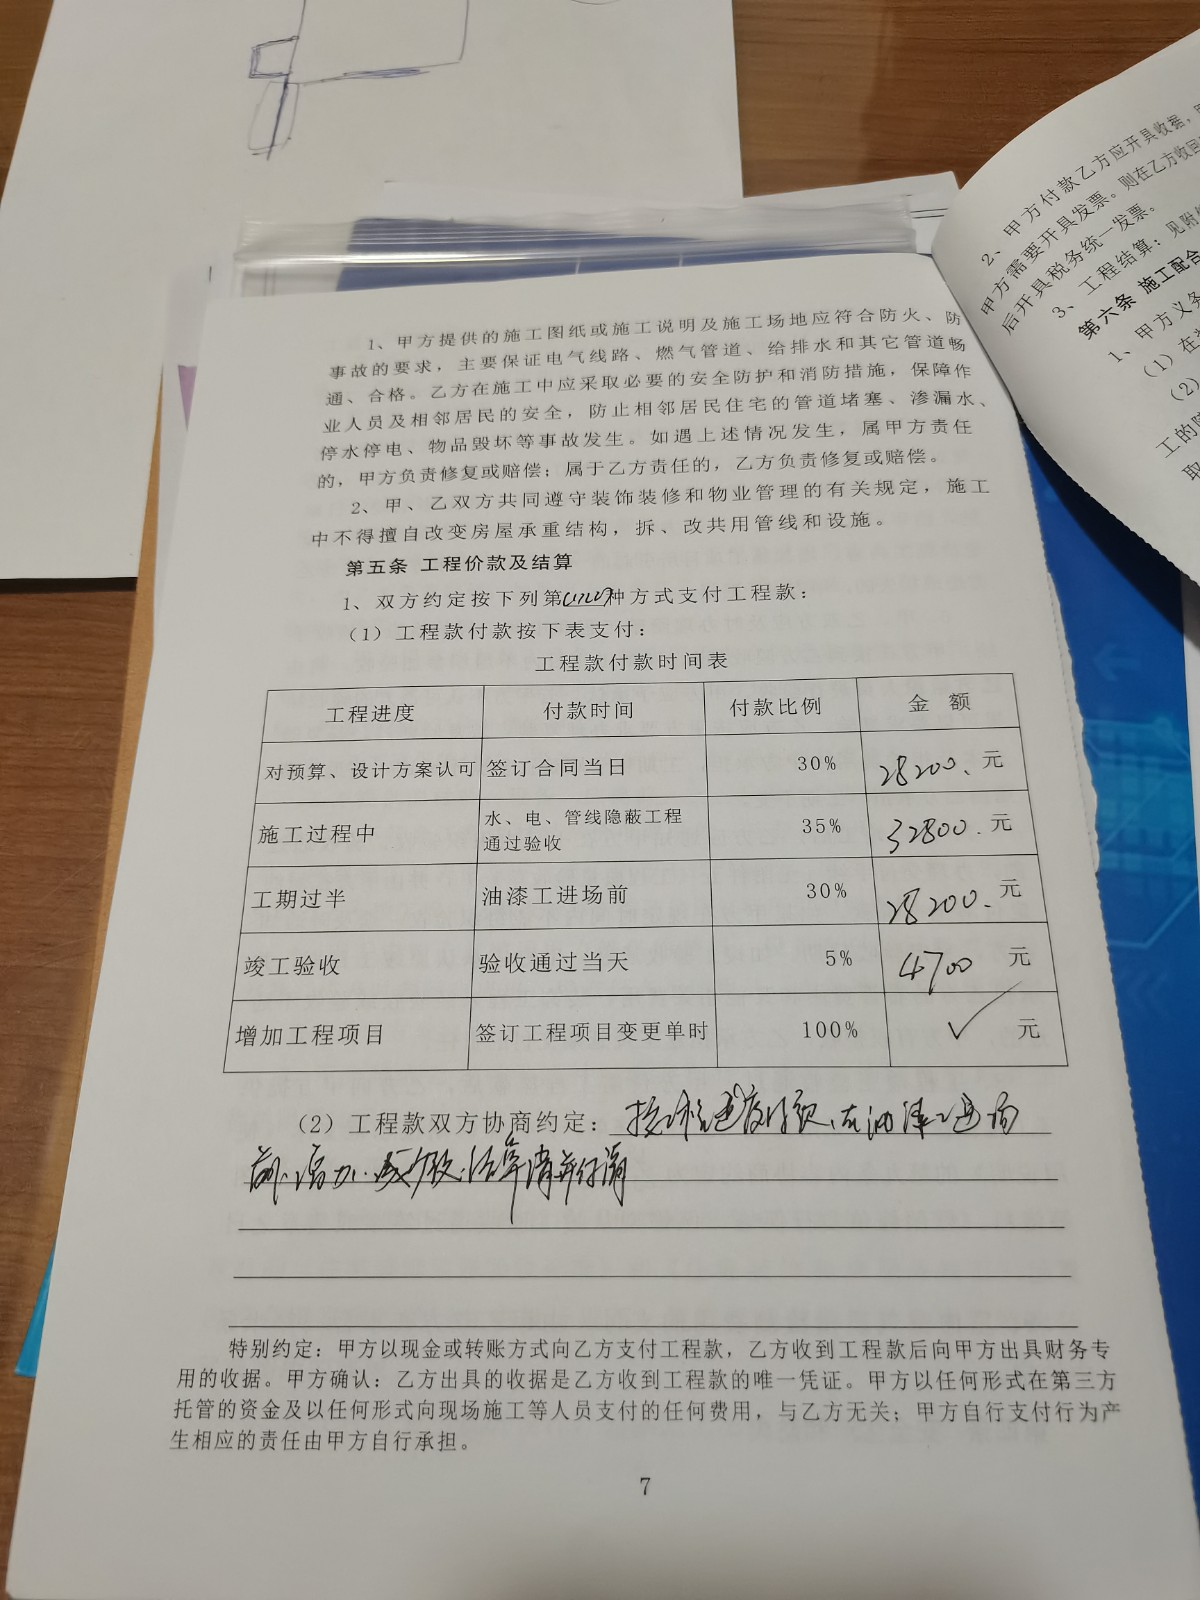 1、甲方提供的施工图纸或施工说明及施工场地应符合防火、防
事故的要求，主要保证电气线路、燃气管道、给排水和其它管道畅
通、合格。乙方在施工中应采取必要的安全防护和消防措施，保障作
业人员及相邻居民的安全，防止相邻居民住宅的管道堵塞、渗漏水、
停水停电、物品毁坏等事故发生。如遇上述情况发生，属甲方责任
的，甲方负责修复或赔偿；属于乙方责任的，乙方负责修复或赔偿。
2、甲、乙双方共同遵守装饰装修和物业管理的有关规定，施工
中不得擅自改变房屋承重结构，拆、改共用管线和设施。
第五条 工程价款及结算
1、双方约定按下列第(1)(2)种方式支付工程款：
（1）工程款付款按下表支付：
工程款付款时间表
工程进度 付款时间 付款比例 金 额
对预算、设计方案认可 签订合同当日 30% 28200.元
施工过程中 水、电、管线隐蔽工程
通过验收 35% 32800.元
工期过半 油漆工进场前 30% 28200.元
竣工验收 验收通过当天 5% 4700 元
增加工程项目 签订工程项目变更单时 100% ✓ 元
（2）工程款双方协商约定：按工程进度付款.在油漆工进场
前.增加.减少款.结算清并付清
特别约定：甲方以现金或转账方式向乙方支付工程款，乙方收到工程款后向甲方出具财务专
用的收据。甲方确认：乙方出具的收据是乙方收到工程款的唯一凭证。甲方以任何形式在第三方
托管的资金及以任何形式向现场施工等人员支付的任何费用，与乙方无关；甲方自行支付行为产
生相应的责任由甲方自行承担。
7
2、甲方付款乙方应开具收据，
甲方需要开具发票。则在乙方收回
后开具税务统一发票。
3、工程结算：见附
第六条 施工配合
1、甲方义务
（1）在
（2）
工的
取